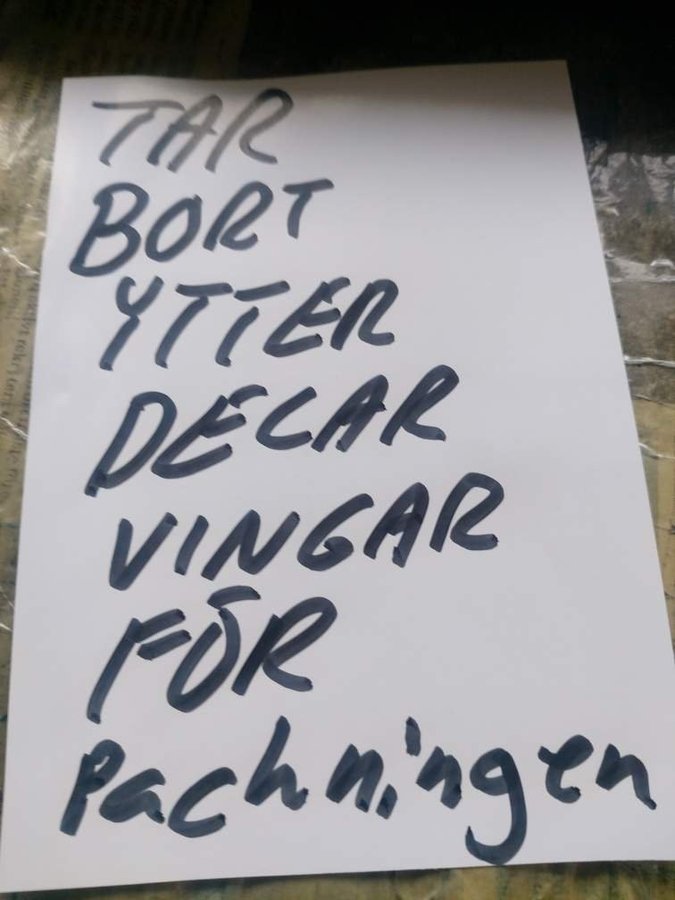 TAR
BORT
YTTER
DELAR
VINGAR
FÖR
Pachningen